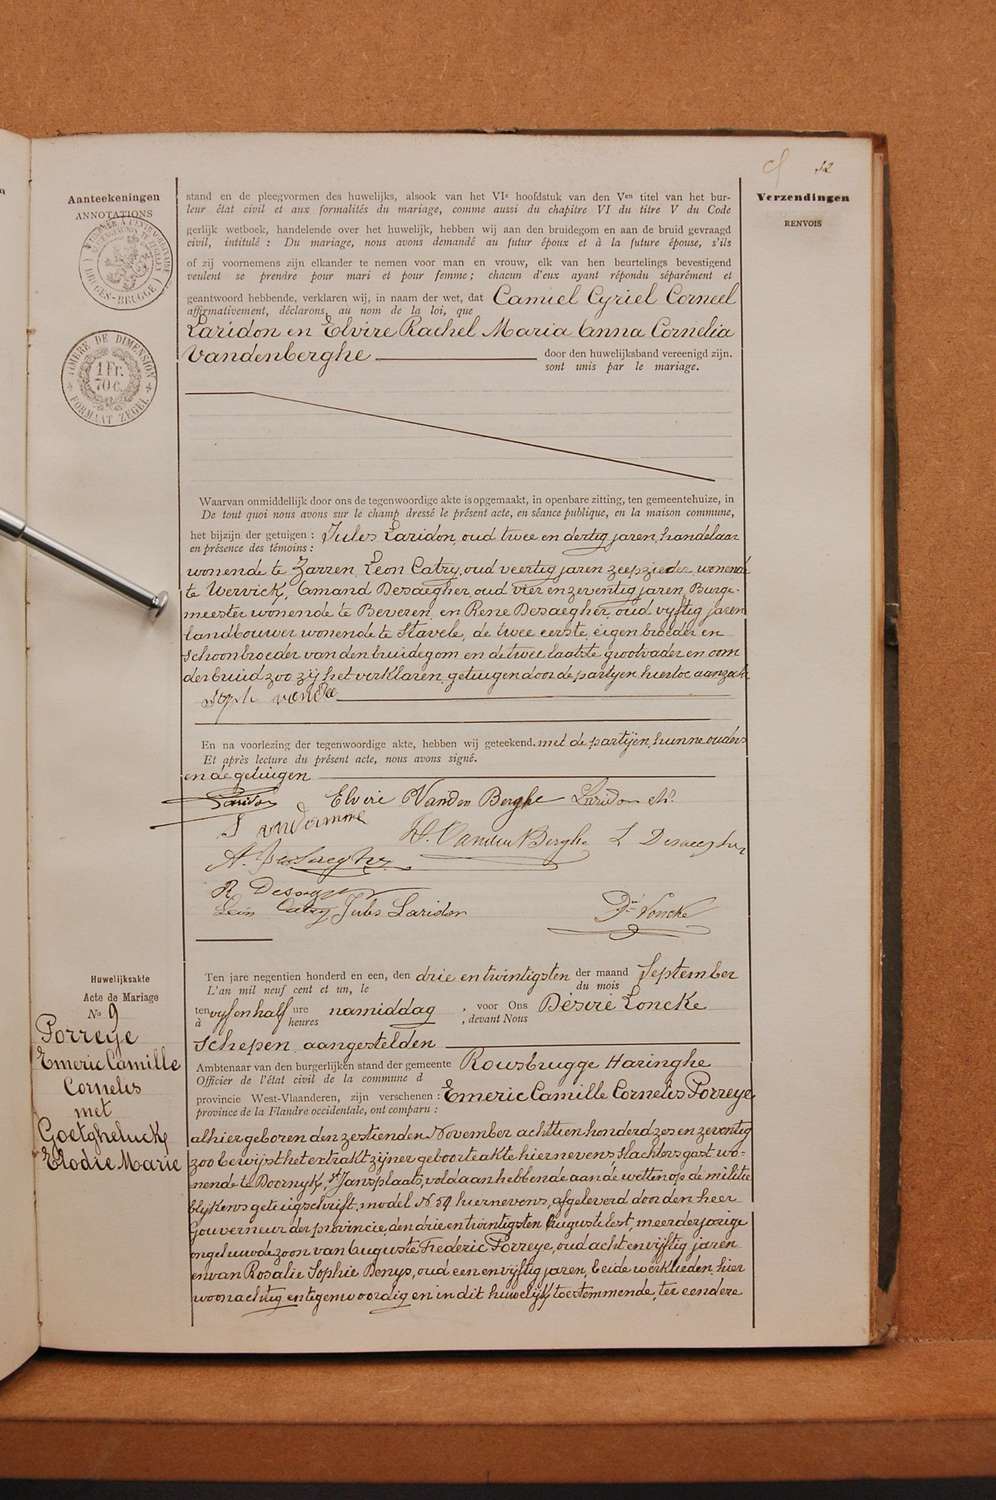 52
Aanteekeningen
ANNOTATIONS
BRUGES-BRUGGE
TIMBRE DE DIMENSION
1 Fr.
70 c.
FORMAAT ZEGEL
Verzendingen
RENVOIS
stand en de pleegvormen des huwelijks, alsook van het VIe hoofdstuk van den Ven titel van het bur-
leur état civil et aux formalités du mariage, comme aussi du chapitre VI du titre V du Code
gerlijk wetboek, handelende over het huwelijk, hebben wij aan den bruidegom en aan de bruid gevraagd
civil, intitulé : Du mariage, nous avons demandé au futur époux et à la future épouse, s'ils
of zij voornemens zijn elkander te nemen voor man en vrouw, elk van hen beurtelings bevestigend
veulent se prendre pour mari et pour femme ; chacun d'eux ayant répondu séparément et
geantwoord hebbende, verklaren wij, in naam der wet, dat Camiel Cyriel Corneel
affirmativement, déclarons, au nom de la loi, que
Laridon en Elvire Rachel Maria Anna Cornelia
Vandenberghe
door den huwelijksband vereenigd zijn.
sont unis par le mariage.
Waarvan onmiddellijk door ons de tegenwoordige akte is opgemaakt, in openbare zitting, ten gemeentehuize, in
De tout quoi nous avons sur le champ dressé le présent acte, en séance publique, en la maison commune,
het bijzijn der getuigen : Jules Laridon, oud twee en dertig jaren, handelaar
en présence des témoins :
wonende te Zarren, Leon Catry, oud veertig jaren zeepzieder wonende
te Wervick, Amand Desaegher oud vier en zeventig jaren, Burge-
meester wonende te Beveren, en Rene Desaegher, oud vijftig jaren
landbouwer wonende te Stavele, de twee eerste, eigen broeder en
schoonbroeder van den bruidegom en de twee laatste grootvader en oom
der bruid zoo zij het verklaren, getuigen door de partijen hiertoe aanzocht
En na voorlezing der tegenwoordige akte, hebben wij geteekend. met de partijen, hunne ouders
Et après lecture du présent acte, nous avons signé.
en de getuigen
Laridon Elvire Vanden Berghe Laridon
Vandamme
H. Vanden Berghe L Desaegher
A. Desaegher
R Desaegher
Leon Catry Jules Laridon
Huwelijksakte
Acte de Mariage
No 9
Porreye
Emeric Camille
Cornelis
met
Goetgheluck
Elodie Marie
Ten jare negentien honderd en een, den drie en twintigsten der maand September
L'an mil neuf cent et un, le du mois
ten vijf en half ure namiddag ; voor Ons Désiré Loncke
à heures , devant Nous
Schepen aangestelden
Ambtenaar van den burgerlijken stand der gemeente Rousbrugge Haringhe
Officier de l'état civil de la commune d
provincie West-Vlaanderen, zijn verschenen : Emeric Camille Cornelis Porreye
province de la Flandre occidentale, ont comparu :
alhier geboren den zestienden November achttien honderd zes en zeventig
zoo bewijst het extrakt zijner geboorteakte hiernevens slachtersgast wo-
nende te Doornyk, St Jansplaats, voldaan hebbende aan de wetten op de militie
blijkens getuigschrift, model No 54 hiernevens, afgeleverd door den heer
Gouverneur der provincie, den drie en twintigsten Augusti lest, meerderjarige
ongehuwde zoon van Auguste Frederic Porreye, oud acht en vijftig jaren
en van Rosalie Sophie Denys, oud een en vijftig jaren, beide werklieden, hier
woonachtig en tegenwoordig en in dit huwelijk toestemmende, ter eendere